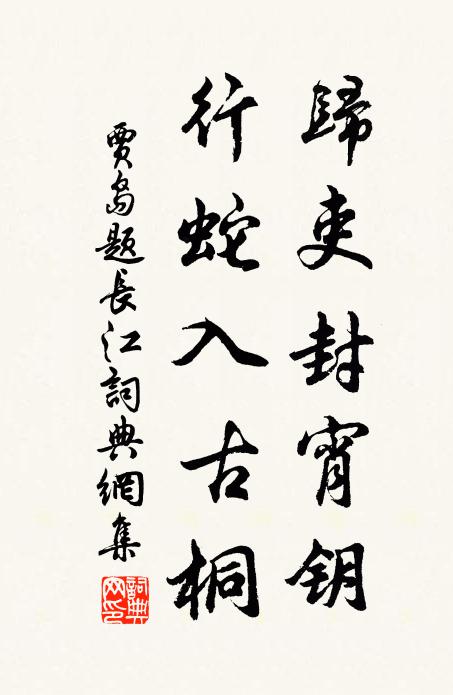 歸吏封宵钥
行蛇入古桐
賈島題長江詞典網集
詞典网印